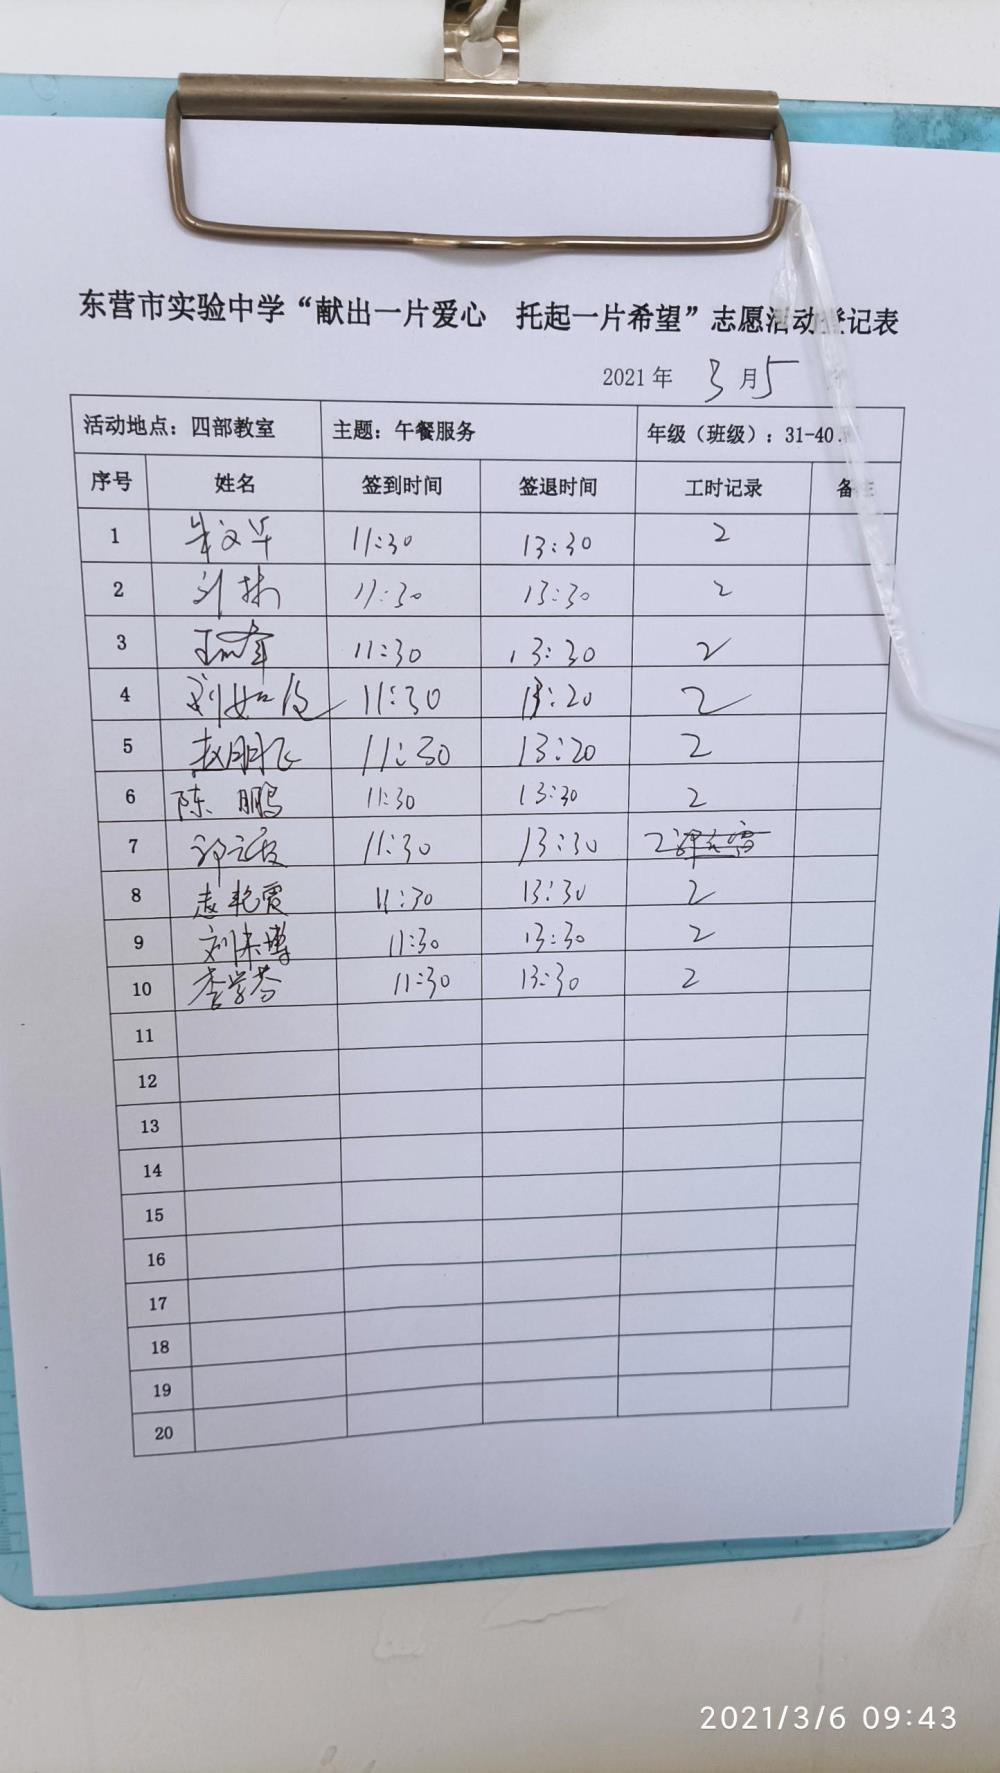 东营市实验中学“献出一片爱心 托起一片希望”志愿活动登记表
2021年 3月5
活动地点：四部教室 主题：午餐服务 年级（班级）：31-40
序号 姓名 签到时间 签退时间 工时记录 备注
1 朱文华 11:30 13:30 2
2 刘 11:30 13:30 2
3 11:30 13:30 2
4 刘如 11:30 13:20 2
5 赵朋飞 11:30 13:20 2
6 陈鹏 11:30 13:30 2
7 11:30 13:30 2
8 艳霞 11:30 13:30 2
9 刘来博 11:30 13:30 2
10 李学芬 11:30 13:30 2
11
12
13
14
15
16
17
18
19
20
2021/3/6 09:43